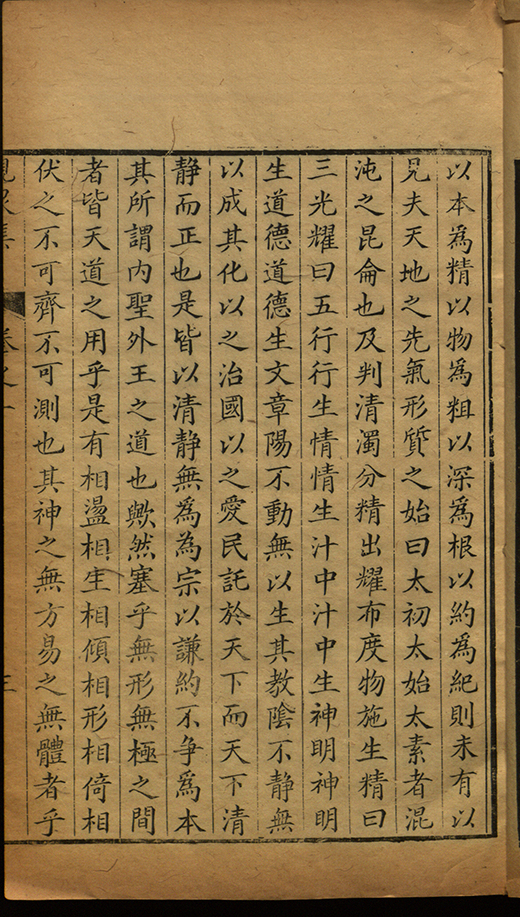 以本為精以物為粗以深為根以約為紀則未有以
見夫天地之先氣形質之始曰太初太始太素者混
沌之昆侖也及判清濁分精出耀布度物施生精曰
三光耀曰五行行生情情生汁中汁中生神明神明
生道德道德生文章陽不動無以生其教陰不静無
以成其化以之治國以之愛民託於天下而天下清
静而正也是皆以清静無為為宗以謙約不爭為本
其所謂内聖外王之道也歟然塞乎無形無極之間
者皆天道之用乎是有相盪相生相傾相形相倚相
伏之不可齊不可測也其神之無方易之無體者乎
卷之一